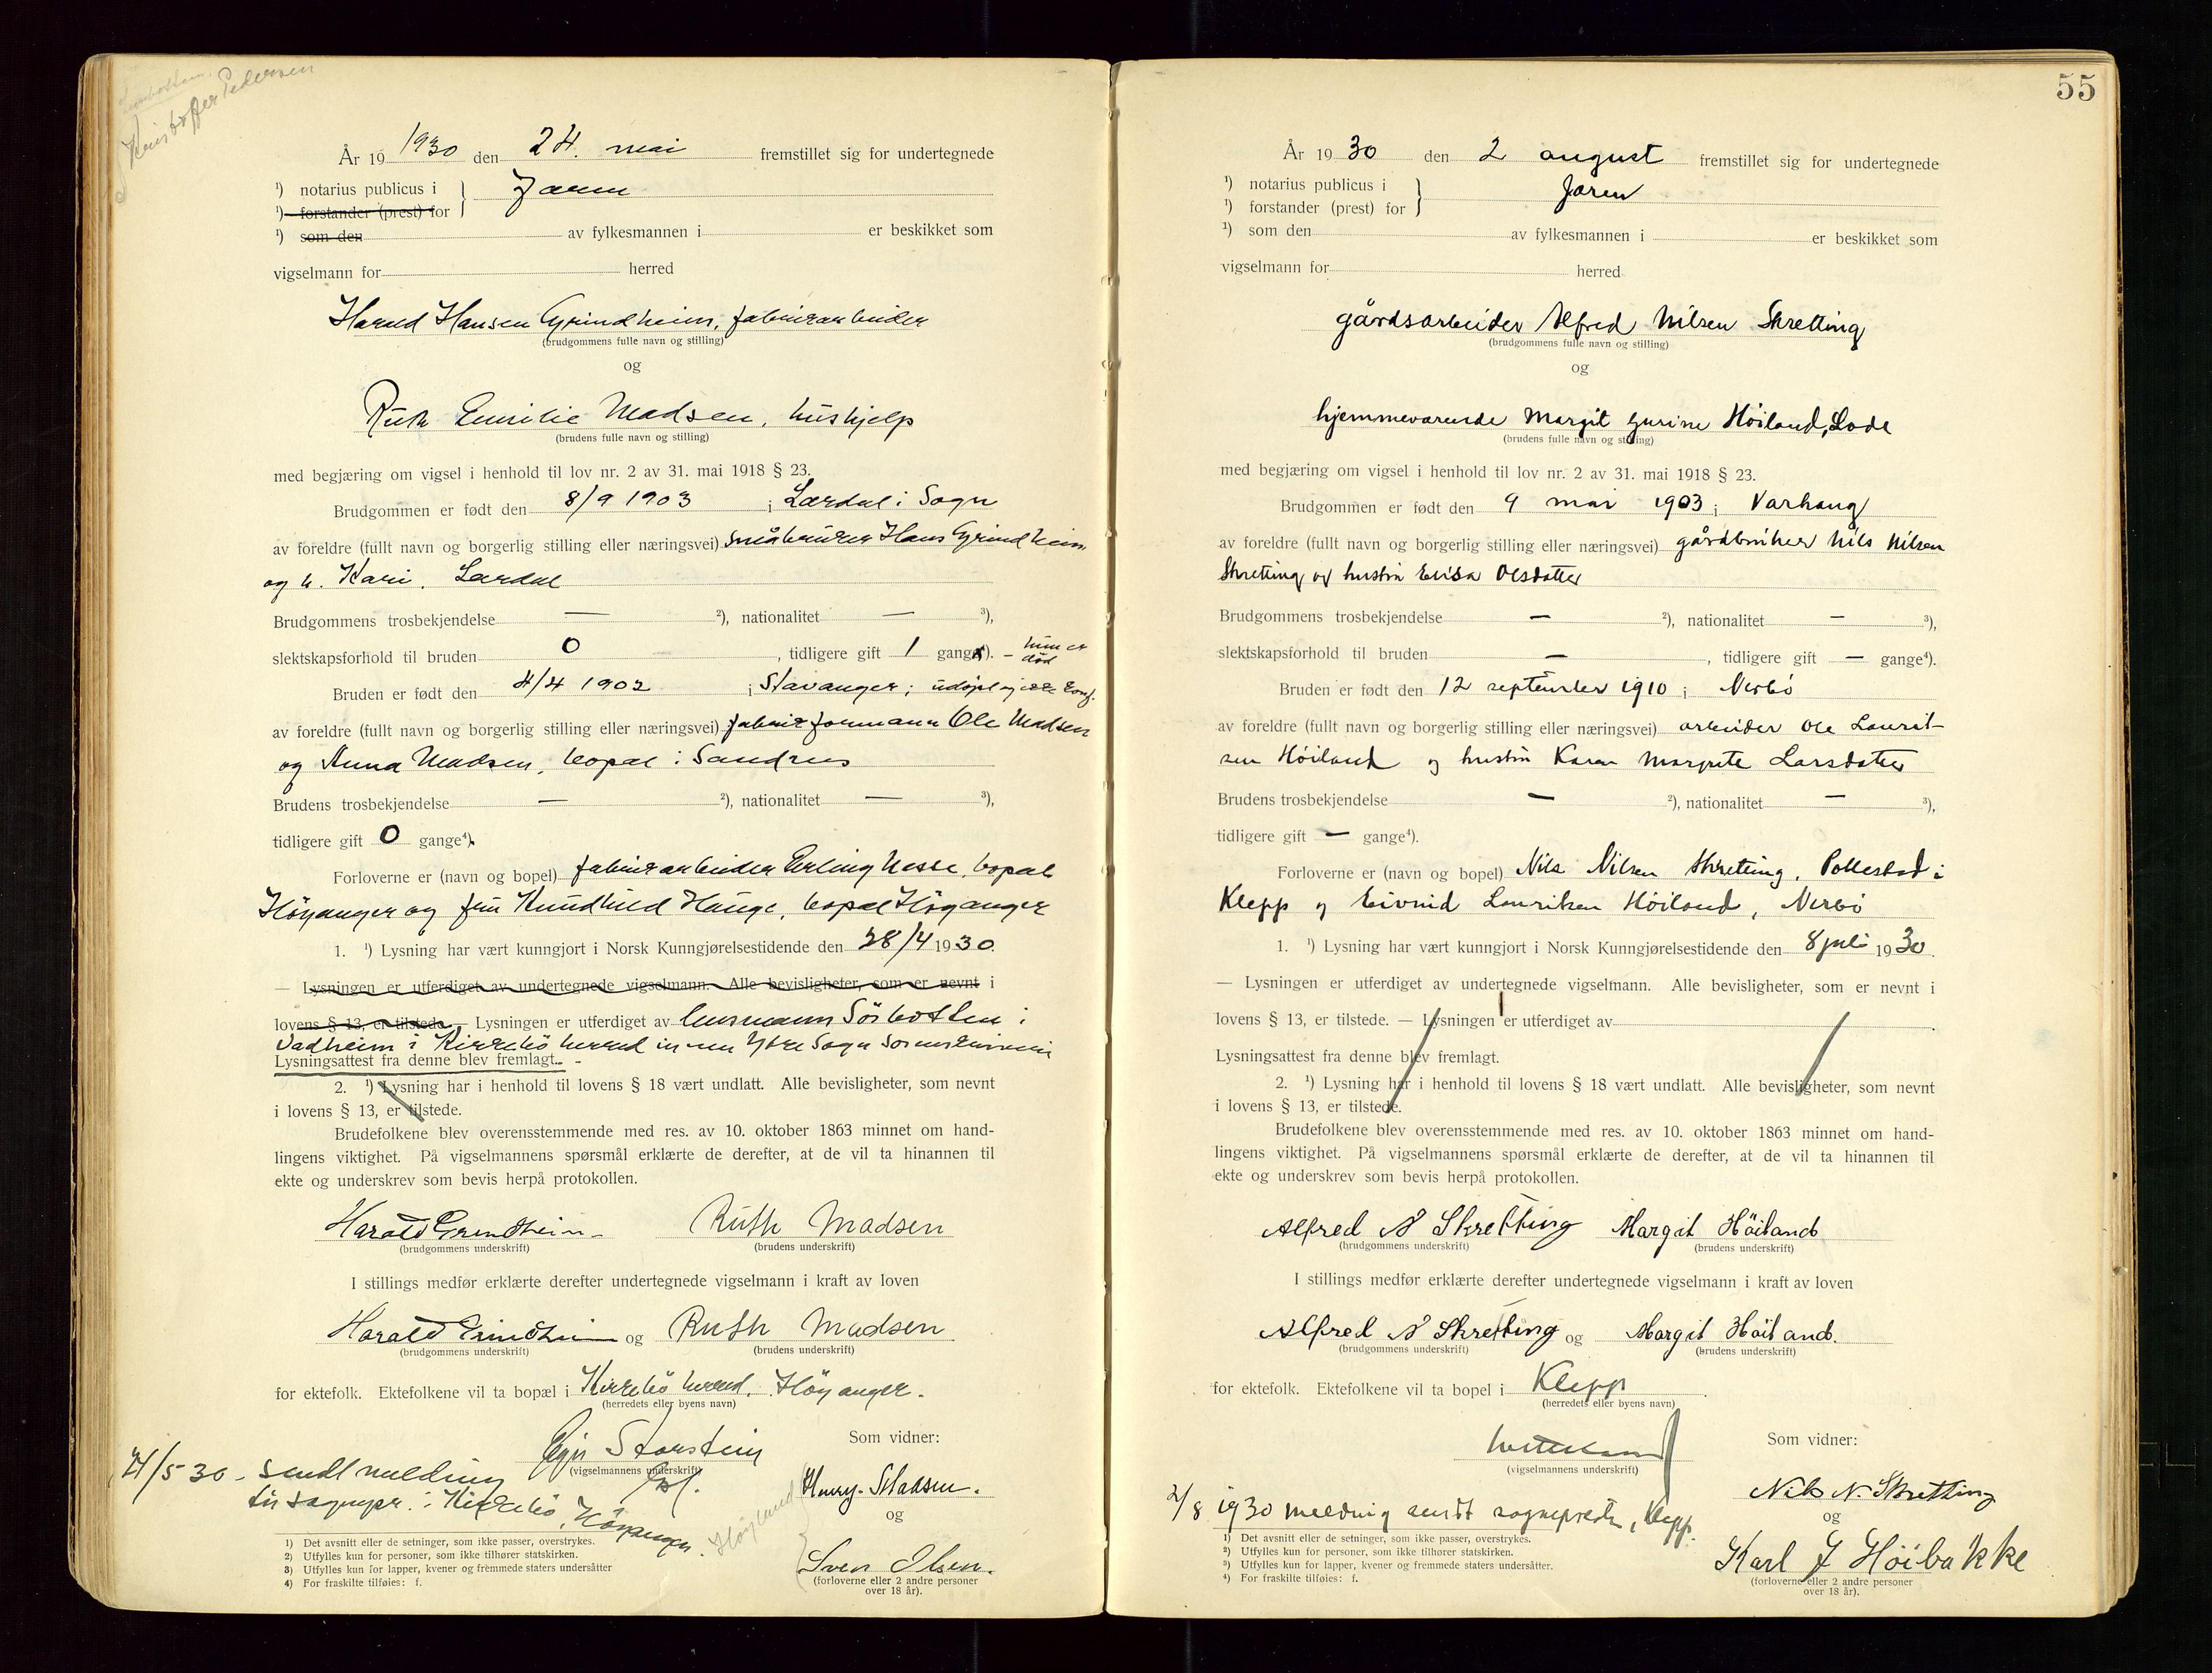 Kristoffer Pedersen
År 19 1930 den 24. mai fremstillet sig for undertegnede
¹) notarius publicus i } Jæren
¹) forstander (prest) for
¹) som den av fylkesmannen i er beskikket som
vigselmann for herred
Harald Hansen Grindheim, fabrikarbeider
(brudgommens fulle navn og stilling)
og
Ruth Emilie Madsen, hushjelp
(brudens fulle navn og stilling)
med begjæring om vigsel i henhold til lov nr. 2 av 31. mai 1918 § 23.
Brudgommen er født den 8/9 1903 i Lærdal i Sogn
av foreldre (fullt navn og borgerlig stilling eller næringsvei) småbruker Hans Grindheim
og h. Kari, Lærdal
Brudgommens trosbekjendelse — ²), nationalitet — ³),
slektskapsforhold til bruden 0, tidligere gift 1 gange⁴). – hun er
død
Bruden er født den 4/4 1902 i Stavanger;
av foreldre (fullt navn og borgerlig stilling eller næringsvei) fabrikformann Ole Madsen
og Anna Madsen, bopæl i Sandnes
Brudens trosbekjendelse — ²), nationalitet — ³),
tidligere gift 0 gange⁴).
Forloverne er (navn og bopel) fabrikarbeider Erling Nesse, bopæl
Høyanger og frk Hauge, bopæl Høyanger
1. ¹) Lysning har vært kunngjort i Norsk Kunngjørelsestidende den 28/4 1930.
— Lysningen er utferdiget av undertegnede vigselmann. Alle bevisligheter, som er nevnt i
lovens § 13, er tilstede. — Lysningen er utferdiget av lensmann Sörbotten i
Vadheim i Kirkebö herred innen Ytre Sogn sorenskriveri
Lysningsattest fra denne blev fremlagt. –
2. ¹) Lysning har i henhold til lovens § 18 vært undlatt. Alle bevisligheter, som nevnt
i lovens § 13, er tilstede.
Brudefolkene blev overensstemmende med res. av 10. oktober 1863 minnet om hand-
lingens viktighet. På vigselmannens spørsmål erklærte de derefter, at de vil ta hinannen til
ekte og underskrev som bevis herpå protokollen.
Harald Grindheim Ruth Madsen
(brudgommens underskrift) (brudens underskrift)
I stillings medfør erklærte derefter undertegnede vigselmann i kraft av loven
Harald Grindheim og Ruth Madsen
(brudgommens underskrift) (brudens underskrift)
for ektefolk. Ektefolkene vil ta bopæl i Kirkebö herred, Höyanger.
(herredets eller byens navn)
Storstein Som vidner:
(vigselmannens underskrift)
24/5 30 – sendt melding
til sognepr. i Kirkebö, Höyanger.
Henry Madsen.
og
Høyland
Sven Olsen.
(forloverne eller 2 andre personer
over 18 år).
1) Det avsnitt eller de setninger, som ikke passer, overstrykes.
2) Utfylles kun for personer, som ikke tilhører statskirken.
3) Utfylles kun for lapper, kvener og fremmede staters undersåtter
4) For fraskilte tilføies: f.
55
År 19 30 den 2 august fremstillet sig for undertegnede
¹) notarius publicus i } Jæren
¹) forstander (prest) for
¹) som den av fylkesmannen i er beskikket som
vigselmann for herred
gårdsarbeider Alfred Nilsen Skretting
(brudgommens fulle navn og stilling)
og
hjemmeværende Margit Gurine Höiland, Lode
(brudens fulle navn og stilling)
med begjæring om vigsel i henhold til lov nr. 2 av 31. mai 1918 § 23.
Brudgommen er født den 9 mai 1903 i Varhaug
av foreldre (fullt navn og borgerlig stilling eller næringsvei) gårdbruker Nils Nilsen
Skretting og hustru Elisa Olsdatter
Brudgommens trosbekjendelse — ²), nationalitet — ³),
slektskapsforhold til bruden —, tidligere gift — gange⁴).
Bruden er født den 12 september 1910 i Nerbö
av foreldre (fullt navn og borgerlig stilling eller næringsvei) arbeider Ole Laurit-
sen Höiland og hustru Karen Margrete Larsdatter
Brudens trosbekjendelse — ²), nationalitet — ³),
tidligere gift — gange⁴).
Forloverne er (navn og bopel) Nils Nilsen Skretting, Pollestad i
Klepp og Eivind Lauritsen Höiland, Nerbö
1. ¹) Lysning har vært kunngjort i Norsk Kunngjørelsestidende den 8 juli 1930.
— Lysningen er utferdiget av undertegnede vigselmann. Alle bevisligheter, som er nevnt i
lovens § 13, er tilstede. — Lysningen er utferdiget av
Lysningsattest fra denne blev fremlagt.
2. ¹) Lysning har i henhold til lovens § 18 vært undlatt. Alle bevisligheter, som nevnt
i lovens § 13, er tilstede.
Brudefolkene blev overensstemmende med res. av 10. oktober 1863 minnet om hand-
lingens viktighet. På vigselmannens spørsmål erklærte de derefter, at de vil ta hinannen til
ekte og underskrev som bevis herpå protokollen.
Alfred N Skretting Margit Höiland
(brudgommens underskrift) (brudens underskrift)
I stillings medfør erklærte derefter undertegnede vigselmann i kraft av loven
Alfred N Skretting og Margit Höiland.
(brudgommens underskrift) (brudens underskrift)
for ektefolk. Ektefolkene vil ta bopel i Klepp
(herredets eller byens navn)
Som vidner:
(vigselmannens underskrift)
2/8 1930 melding sendt sognepresten, Klepp.
Nils N. Skretting
og
Karl J Höibakke
(forloverne eller 2 andre personer
over 18 år).
¹) Det avsnitt eller de setninger, som ikke passer, overstrykes.
²) Utfylles kun for personer, som ikke tilhører statskirken.
³) Utfylles kun for lapper, kvener og fremmede staters undersåtter.
⁴) For fraskilte tilføies: f.